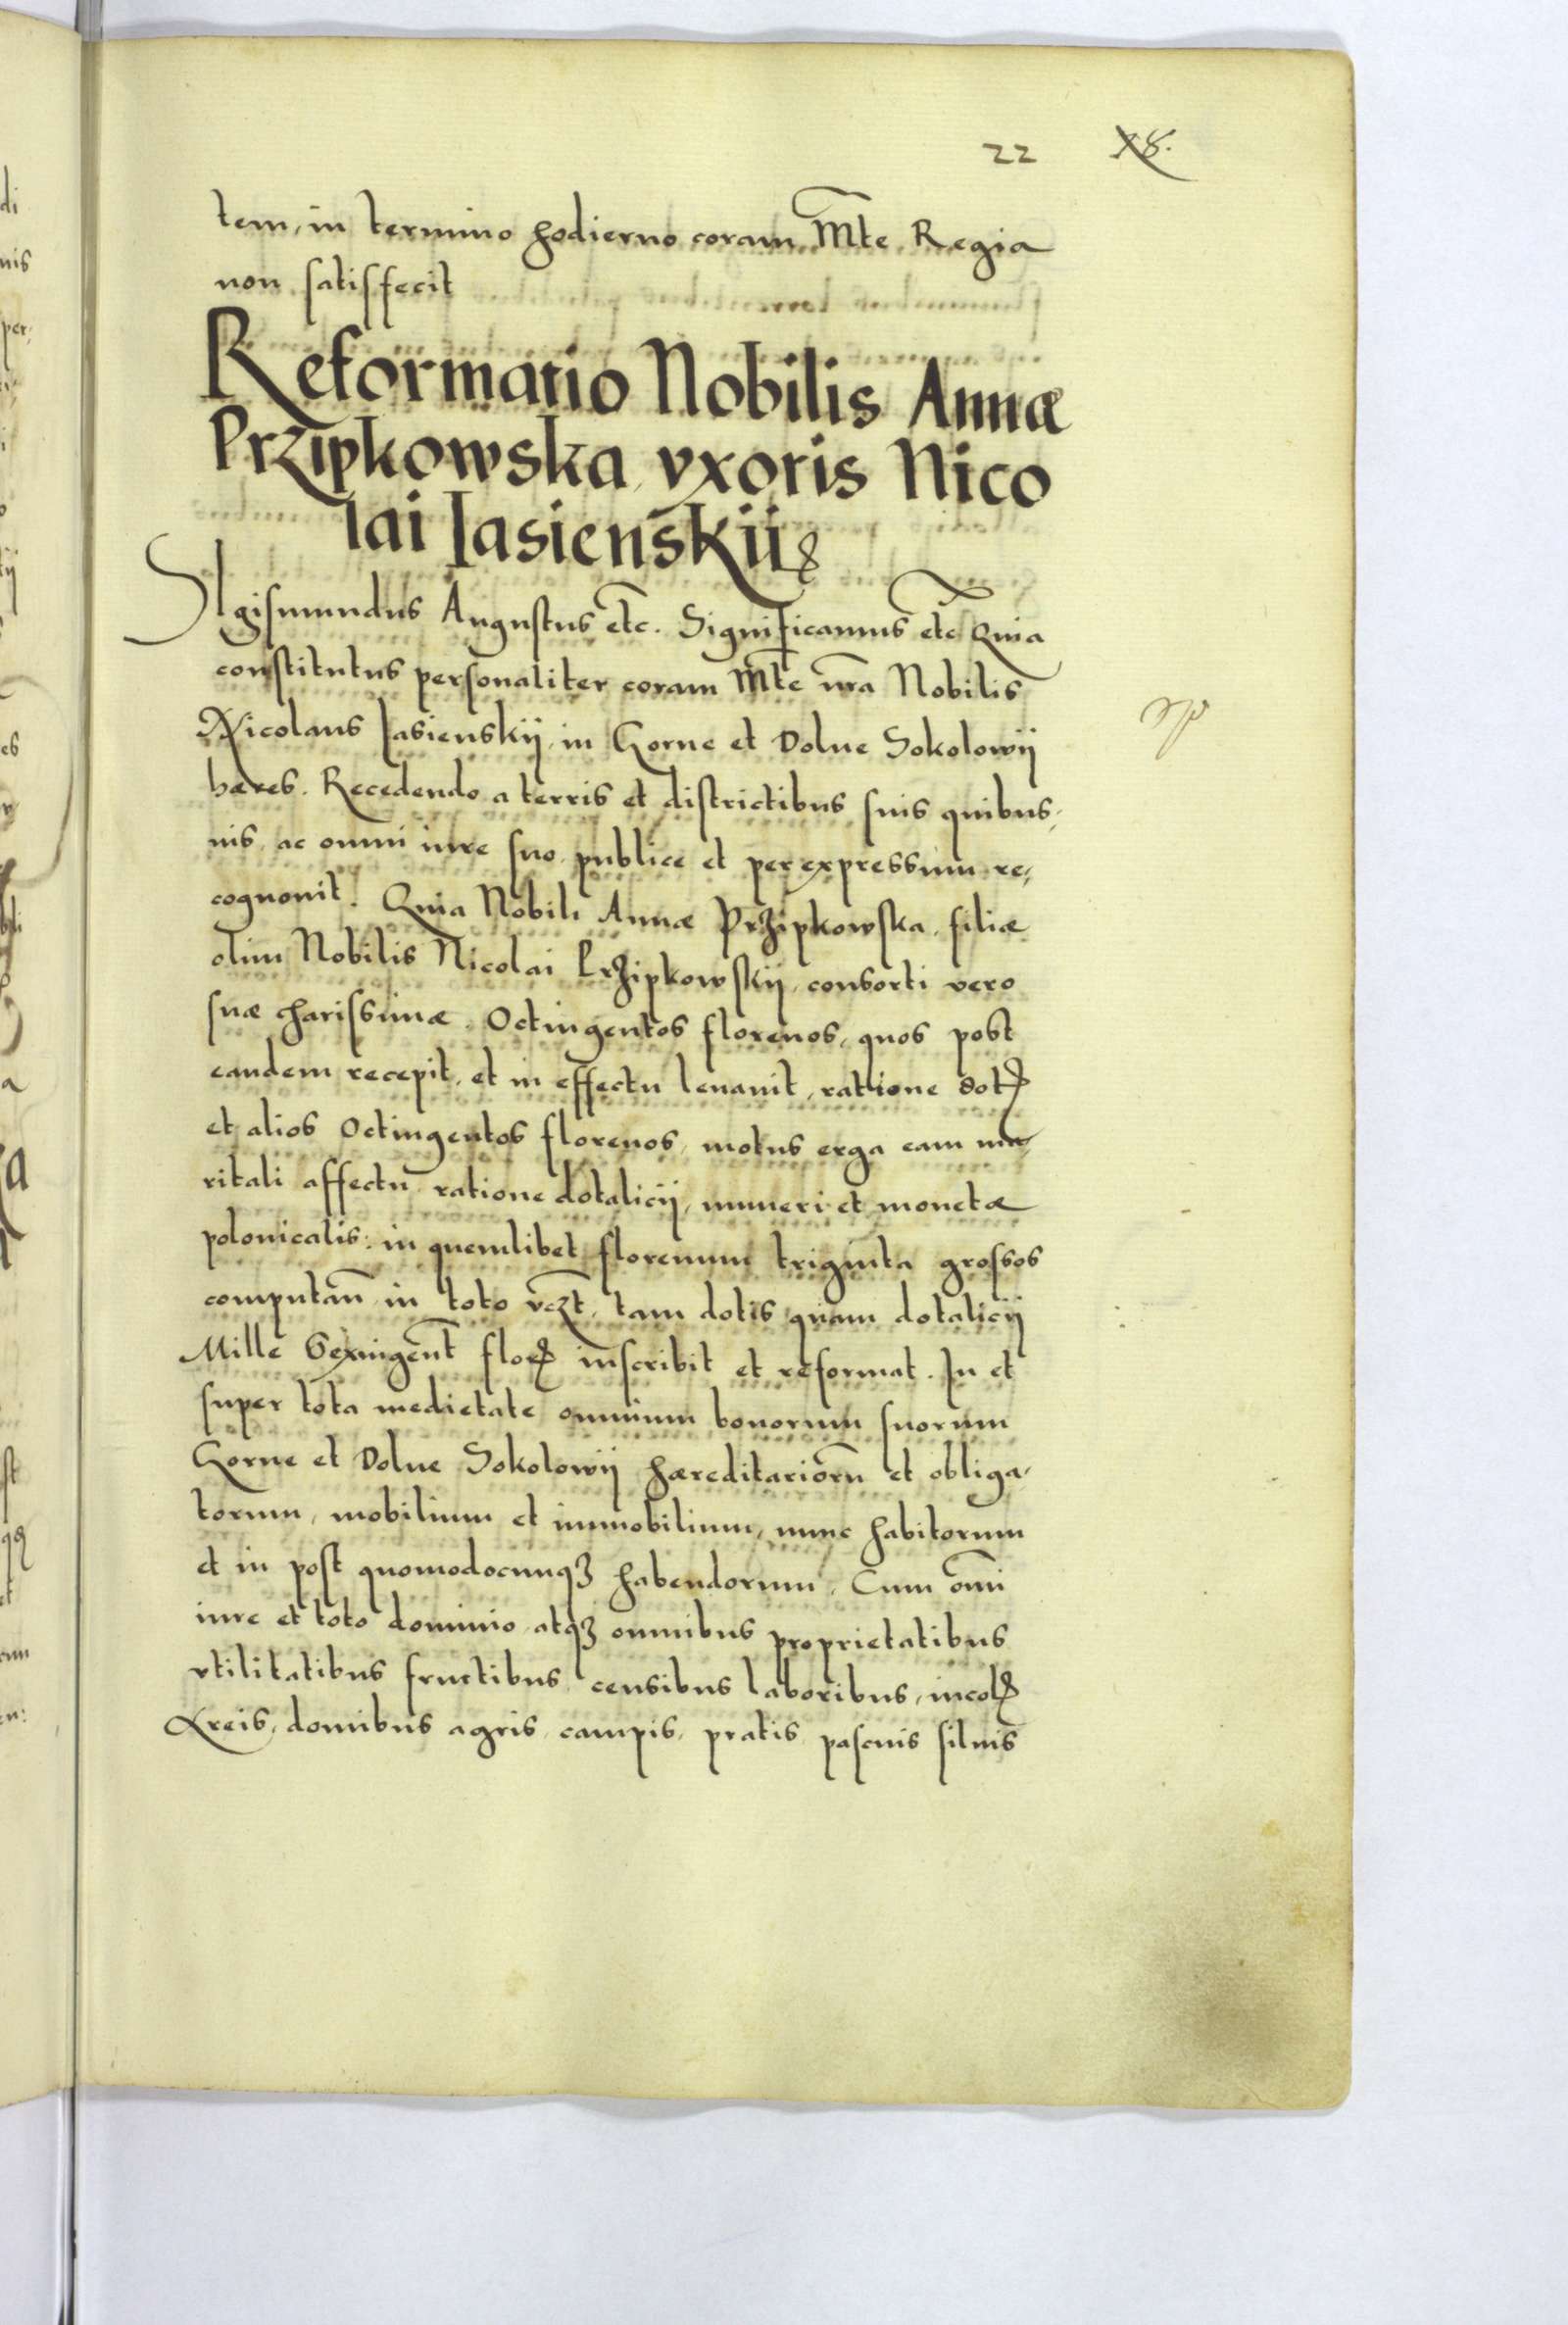 22 X8.
tem, in termino hodierno coram Mte Regia
non satisfecit
Reformatio Nobilis Annæ
Przipkowska, vxoris Nico
lai Iasienskii
SIgismundus Augustus etc. Significamus etc Quia
constitutus personaliter coram Mte nra Nobilis
Nicolaus Iasienskij, in Gorne et Dolne Sokolowij
hæres. Recedendo a terris et districtibus suis quibus,
uis, ac omni iure suo, publice et per expressum re,
cognouit. Quia Nobili Annæ Przipkowska, filiæ
olim Nobilis Nicolai Przipkowskij, consorti vero
suæ charissimæ. Octingentos florenos, quos post
eandem recepit, et in effectu leuauit, ratione dotꝭ
et alios Octingentos florenos, motus erga eam ma,
ritali affectu ratione dotalicij, numeri et monetæ
polonicalis: in quemlibet florenum triginta grossos
computan̄, in toto vczt, tam dotis quam dotalicij
Mille Sexingent̄ florꝭ inscribit et reformat. In et
super tota medietate omnium bonorum suorum
Gorne et Dolne Sokolowij hæreditariorū et obliga,
torum, mobilium et immobilium, nunc habitorum
et in post quomodocunqꝫ habendorum. Cum om̄i
iure et toto dominio, atqꝫ omnibus proprietatibus
vtilitatibus fructibus, censibus laboribus, incolꝭ
Areis, domibus agris, campis, pratis, pascuis siluis